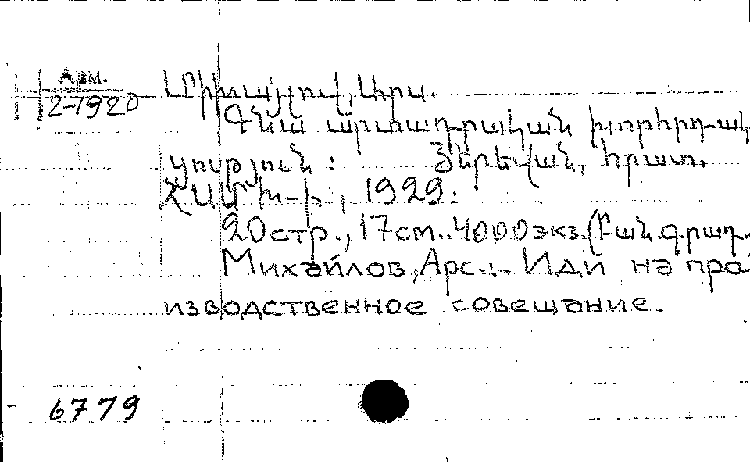 Арм.
2-1920
Միխայլով, Արս.
Գնա արտադրական խորհրդակ
ցություն: Յերեվան, հրատ.
ՀԱՄԽ-ի, 1929.
20стр., 17см. 4000экз. (Բան. գրադ.
Михайлов, Арс.: Иди на про
изводственное совещание.
6779